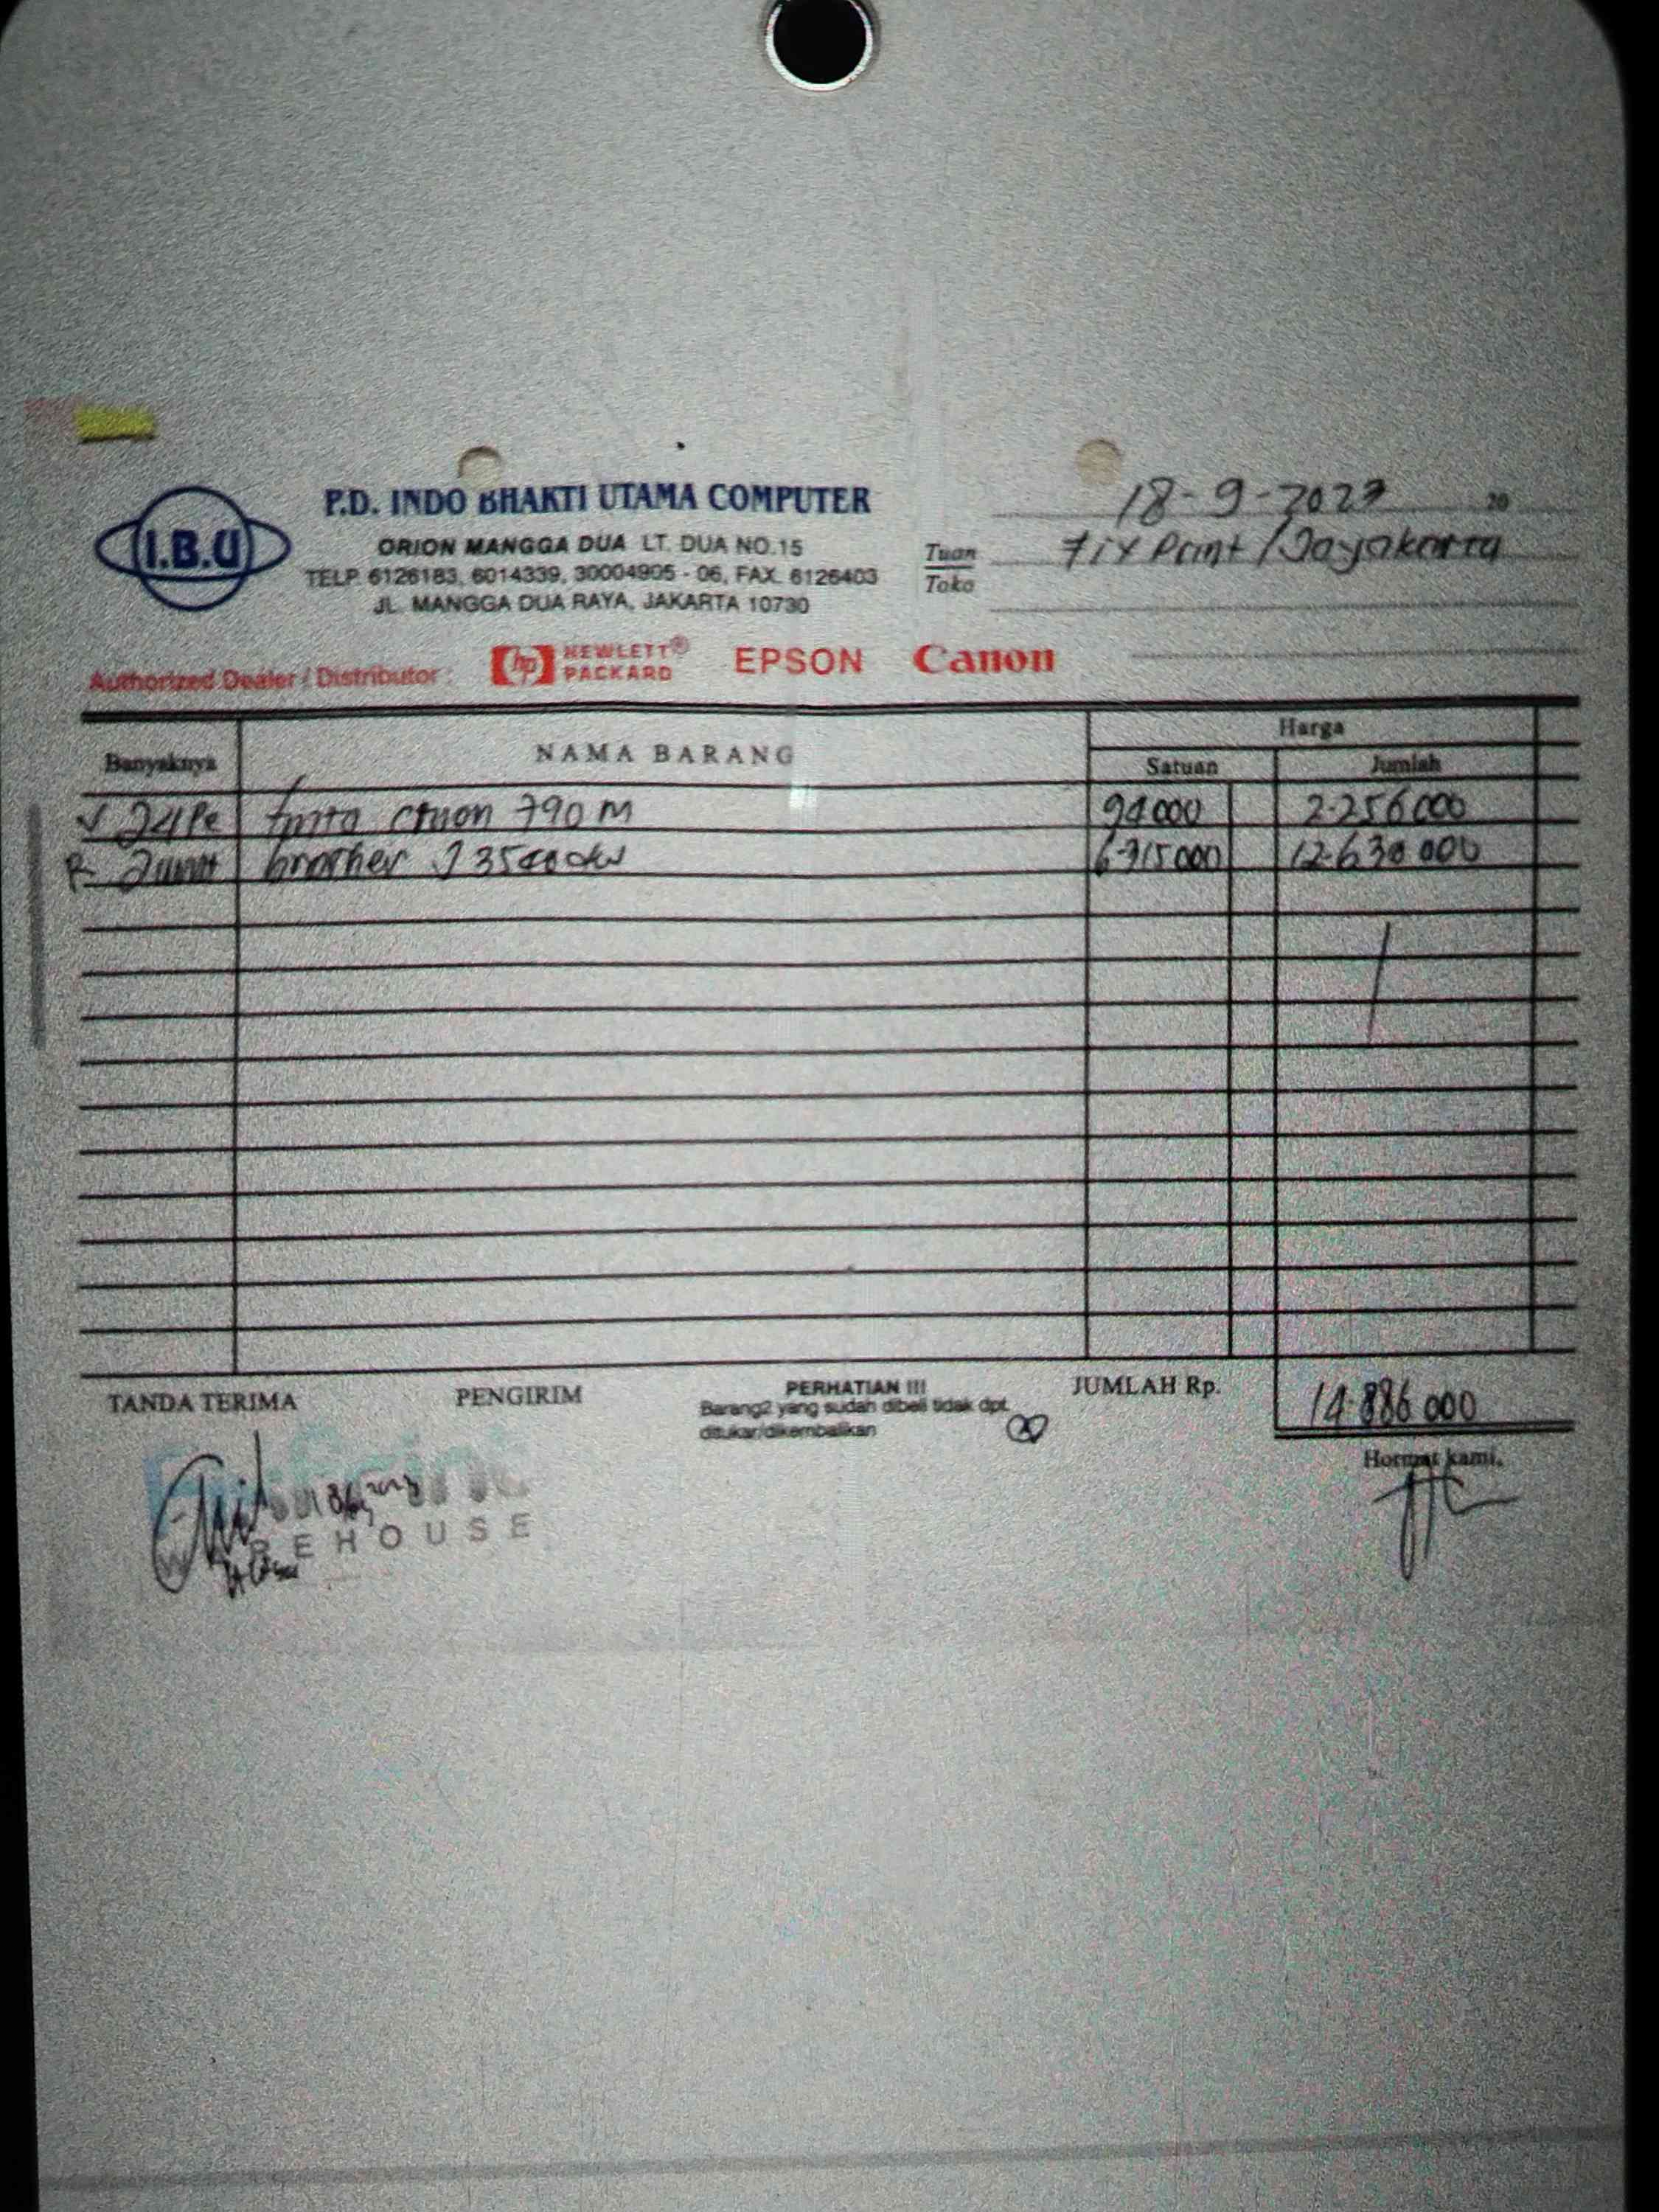 P.D. INDO BHAKTI UTAMA COMPUTER
I.B.U
ORION MANGGA DUA LT. DUA NO.15
TELP. 6126183, 6014339, 30004905 - 06, FAX. 6126403
JL. MANGGA DUA RAYA, JAKARTA 10730
18-9-2023 20
Tuan
Toko
Fix Print / Jayakarta
Authorized Dealer / Distributor :
hp HEWLETT® PACKARD EPSON Canon
Banyaknya NAMA BARANG Harga
Satuan Jumlah
24 Pc tinta canon 790 M 94000 2.256 000
2 unit brother J 3540 dw 6.315 000 12.630 000
TANDA TERIMA PENGIRIM PERHATIAN !!! JUMLAH Rp. 14.886 000
Barang2 yang sudah dibeli tidak dpt.
ditukar/dikembalikan
Hormat kami,